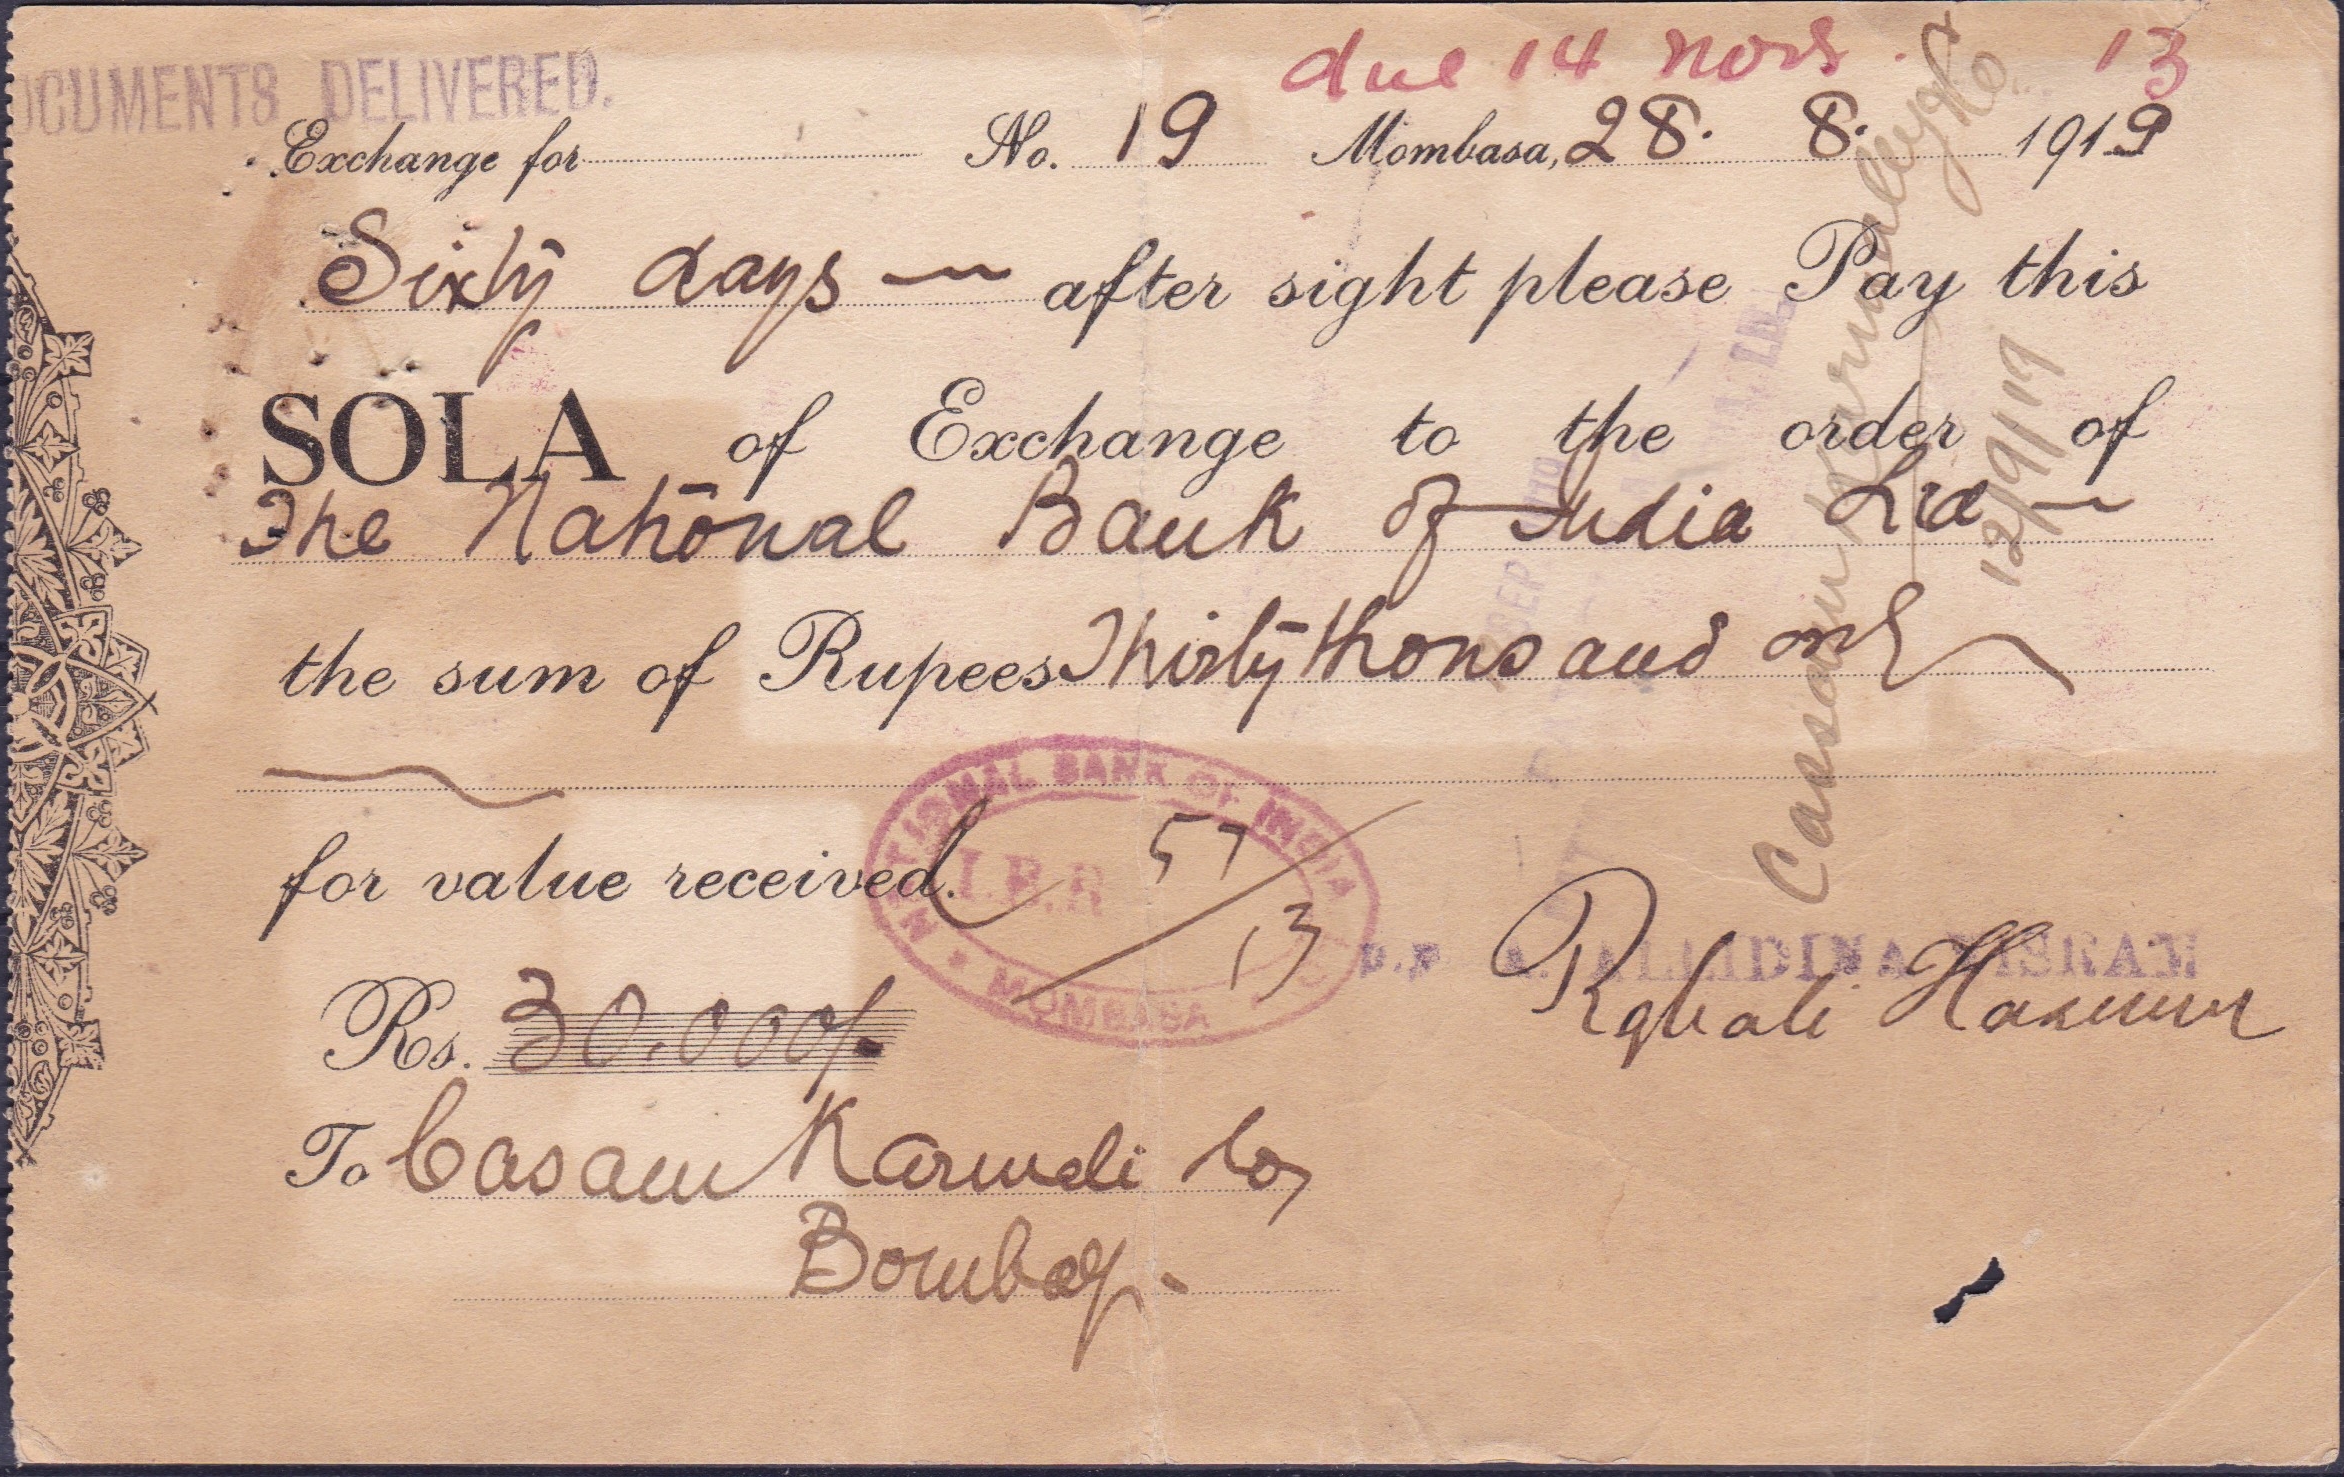 due 14 Novr. 13
DOCUMENTS DELIVERED.
Exchange for No. 19 Mombasa, 28. 8. 1919
Sixty days — after sight please Pay this
SOLA of Exchange to the order of
The National Bank of India Ltd —
the sum of Rupees Thirty thousand only
for value received.
NATIONAL BANK OF INDIA
I.B.R
57/13
MOMBASA
p.p
Rs. 30.000/-
To Casam Karmali Co,
Bombay.
Cassam Karmally & Co
12/9/19
SEP